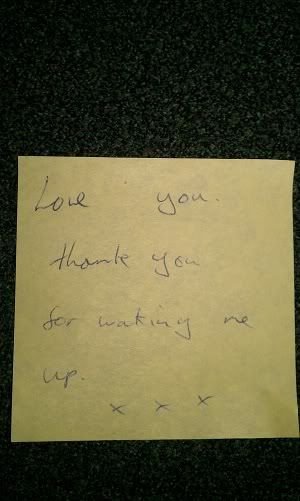 Love you.
thank you
for waking me
up.
x x x